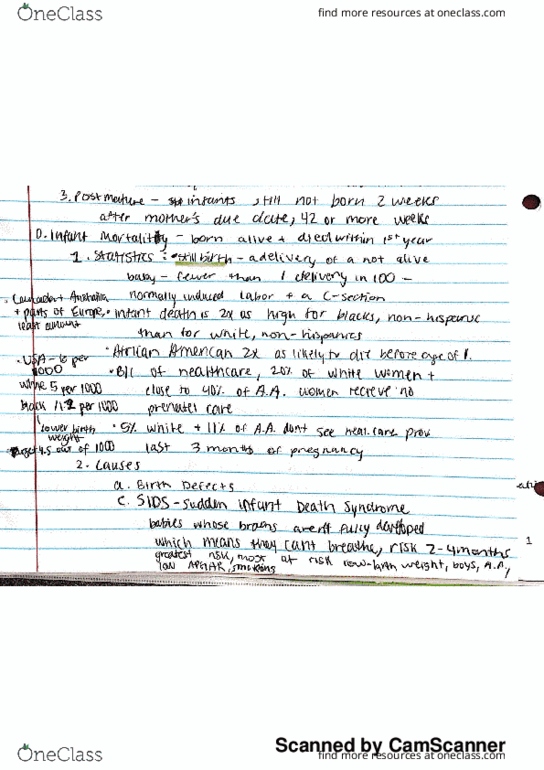 OneClass
find more resources at oneclass.com
3. Postmature - infants still not born 2 weeks
after mother's due date, 42 or more weeks
D. Infant Mortality - born alive + died within 1st year
1. Statistics: • still birth - a delivery of a not alive
baby - fewer than 1 delivery in 100 -
normally induced labor + a C-section
• Canada + Australia
+ parts of Europe,
least amount
• infant death is 2x as high for blacks, non-hispanic
than for white, non-hispanics
• African American 2x as likely to die before age of 1.
• USA - 6 per
1000
white 5 per 1000
black 11.2 per 1000
• B/c of healthcare, 20% of white women +
close to 40% of A.A. women recieve no
prenatal care
lower birth
weight
4.5 out of 1000
• 5% white + 11% of A.A. dont see heal. care prov
last 3 months of pregnancy
2. Causes
a. Birth Defects
C. SIDS - Sudden infant Death Syndrome
babies whose brains aren't fully developed
which means they cant breathe, risk 2-4 months
greatest risk, most at risk low-birth weight, boys, A.A,
low APGAR, smoking
1
Scanned by CamScanner
OneClass
find more resources at oneclass.com